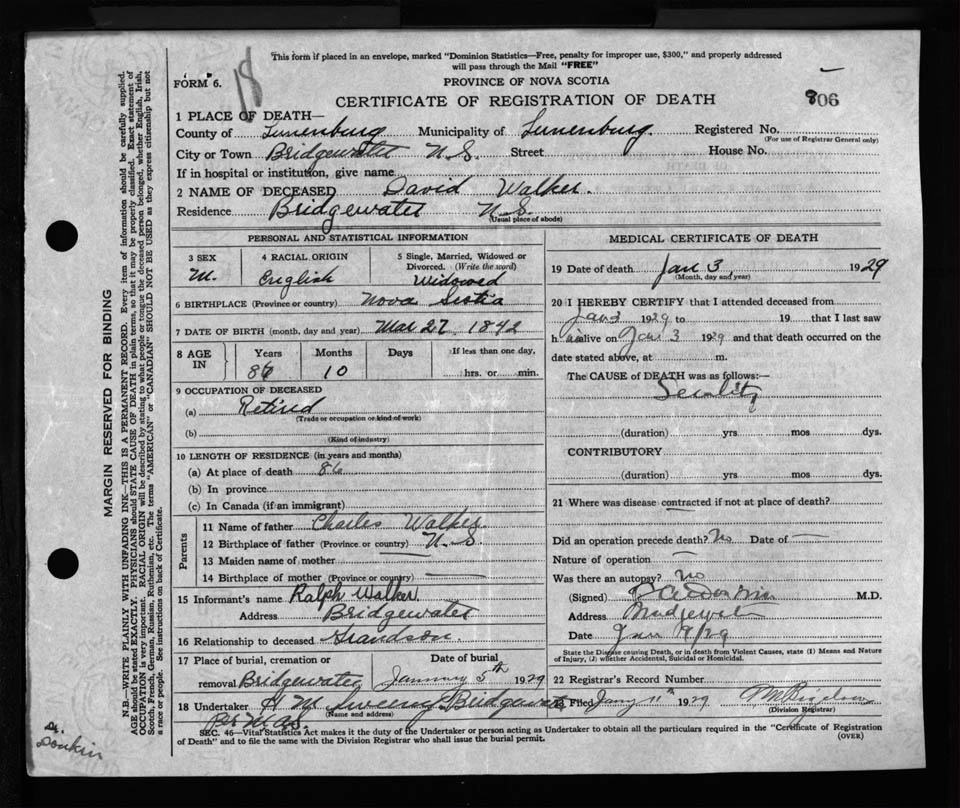 This form if placed in an envelope, marked "Dominion Statistics—Free, penalty for improper use, $300," and properly addressed
will pass through the Mail "FREE"
FORM 6.
18
PROVINCE OF NOVA SCOTIA
CERTIFICATE OF REGISTRATION OF DEATH
806
1 PLACE OF DEATH—
County of Lunenburg Municipality of Lunenburg. Registered No.
(For use of Registrar General only)
City or Town Bridgewater N.S. Street House No.
If in hospital or institution, give name
2 NAME OF DECEASED David Walker.
Residence Bridgewater N.S.
(Usual place of abode)
PERSONAL AND STATISTICAL INFORMATION
3 SEX 4 RACIAL ORIGIN 5 Single, Married, Widowed or
Divorced. (Write the word)
M. English Widowed
6 BIRTHPLACE (Province or country) Nova Scotia
7 DATE OF BIRTH (month, day and year) Mar 27 1842
8 AGE IN Years Months Days If less than one day,
86 10 hrs. or min.
9 OCCUPATION OF DECEASED
(a) Retired
(Trade or occupation or kind of work)
(b)
(Kind of industry)
10 LENGTH OF RESIDENCE (in years and months)
(a) At place of death 86
(b) In province
(c) In Canada (if an immigrant)
Parents
11 Name of father Charles Walker.
12 Birthplace of father (Province or country) N.S.
13 Maiden name of mother —
14 Birthplace of mother (Province or country) —
15 Informant's name Ralph Walker.
Address Bridgewater
16 Relationship to deceased Grandson.
17 Place of burial, cremation or Date of burial
removal Bridgewater January 5th 1929
18 Undertaker Bridgewater
(Name and address)
Per M.A.S.
MEDICAL CERTIFICATE OF DEATH
19 Date of death Jan 3, 1929
(Month, day and year)
20 I HEREBY CERTIFY that I attended deceased from
Jan 3 1929 to 19 that I last saw
h alive on Jan 3 1929 and that death occurred on the
date stated above, at m.
The CAUSE of DEATH was as follows:—
Senility
(duration) yrs mos dys.
CONTRIBUTORY
(duration) yrs mos dys.
21 Where was disease contracted if not at place of death?
—
Did an operation precede death? No Date of —
Nature of operation —
Was there an autopsy? no
(Signed) M.D.
Address Bridgewater
Date Jan 9/29
State the Disease causing Death, or in death from Violent Causes, state (1) Means and
Nature of Injury, (2) whether Accidental, Suicidal or Homicidal.
22 Registrar's Record Number
23 Filed Jany 11th 1929
(Division Registrar)
SEC. 46—Vital Statistics Act makes it the duty of the Undertaker or person acting as Undertaker to obtain all the particulars required in the "Certificate of Registration
of Death" and to file the same with the Division Registrar who shall issue the burial permit. (OVER)
MARGIN RESERVED FOR BINDING
N.B.—WRITE PLAINLY WITH UNFADING INK—THIS IS A PERMANENT RECORD. Every item of information should be carefully supplied.
AGE should be stated EXACTLY. PHYSICIANS should STATE CAUSE OF DEATH in plain terms, so that it may be properly classified. Exact statement of
OCCUPATION is very important. RACIAL ORIGIN will be described by stating to what people or tongue the deceased person belonged, whether English, Irish,
Scotch, French, German, Russian, Ruthenian, etc. The terms "AMERICAN" or "CANADIAN" SHOULD NOT BE USED as they express citizenship but not
a race or people. See instructions on back of Certificate.
Dr.
Donkin